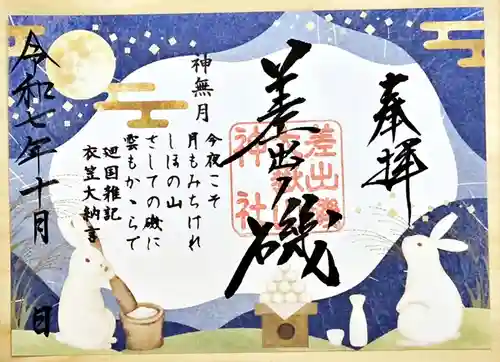 奉拝
差出ノ磯
差出磯
大嶽山
神社
神無月
今夜こそ
月もみちけれ
しほの山
さしての磯に
雲もかゝらで
廻国雑記
衣笠大納言
令和七年十月 日